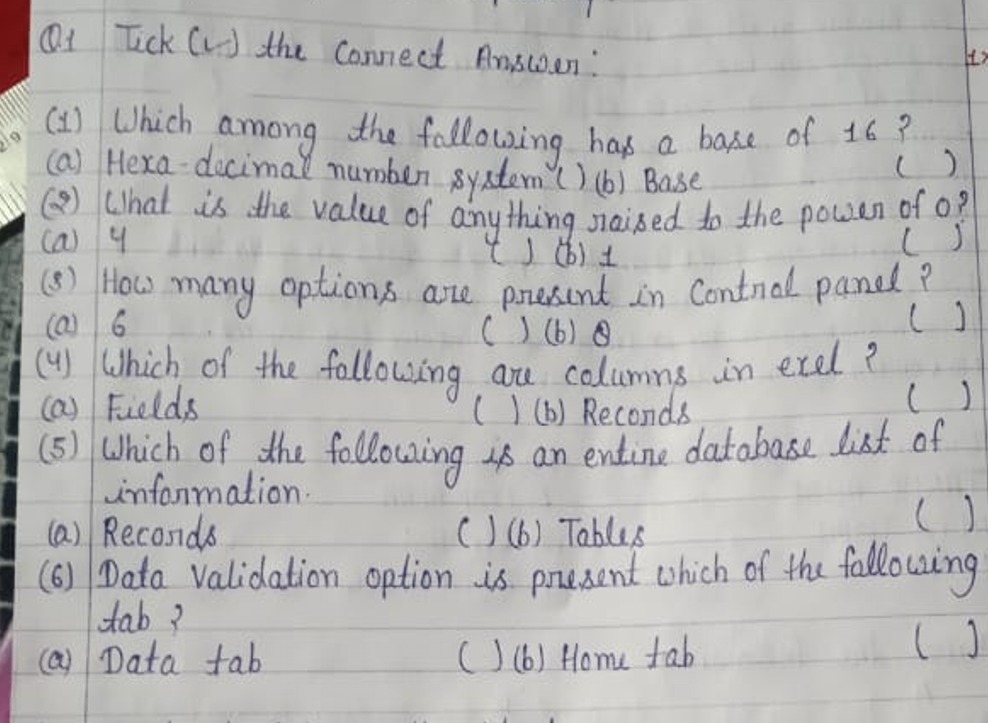 Q1 Tick (✓) the Correct Answer:
(1) Which among the following has a base of 16 ?
(a) Hexa-decimal number system ( ) (b) Base ( )
(2) What is the value of anything raised to the power of 0?
(a) 4 ( ) (b) 1 ( )
(3) How many options are present in Control panel ?
(a) 6 ( ) (b) 8 ( )
(4) Which of the following are columns in exel ?
(a) Fields ( ) (b) Records ( )
(5) Which of the following is an entire database list of
information.
(a) Records ( ) (b) Tables ( )
(6) Data Validation option is present which of the following
tab ?
(a) Data tab ( ) (b) Home tab ( )